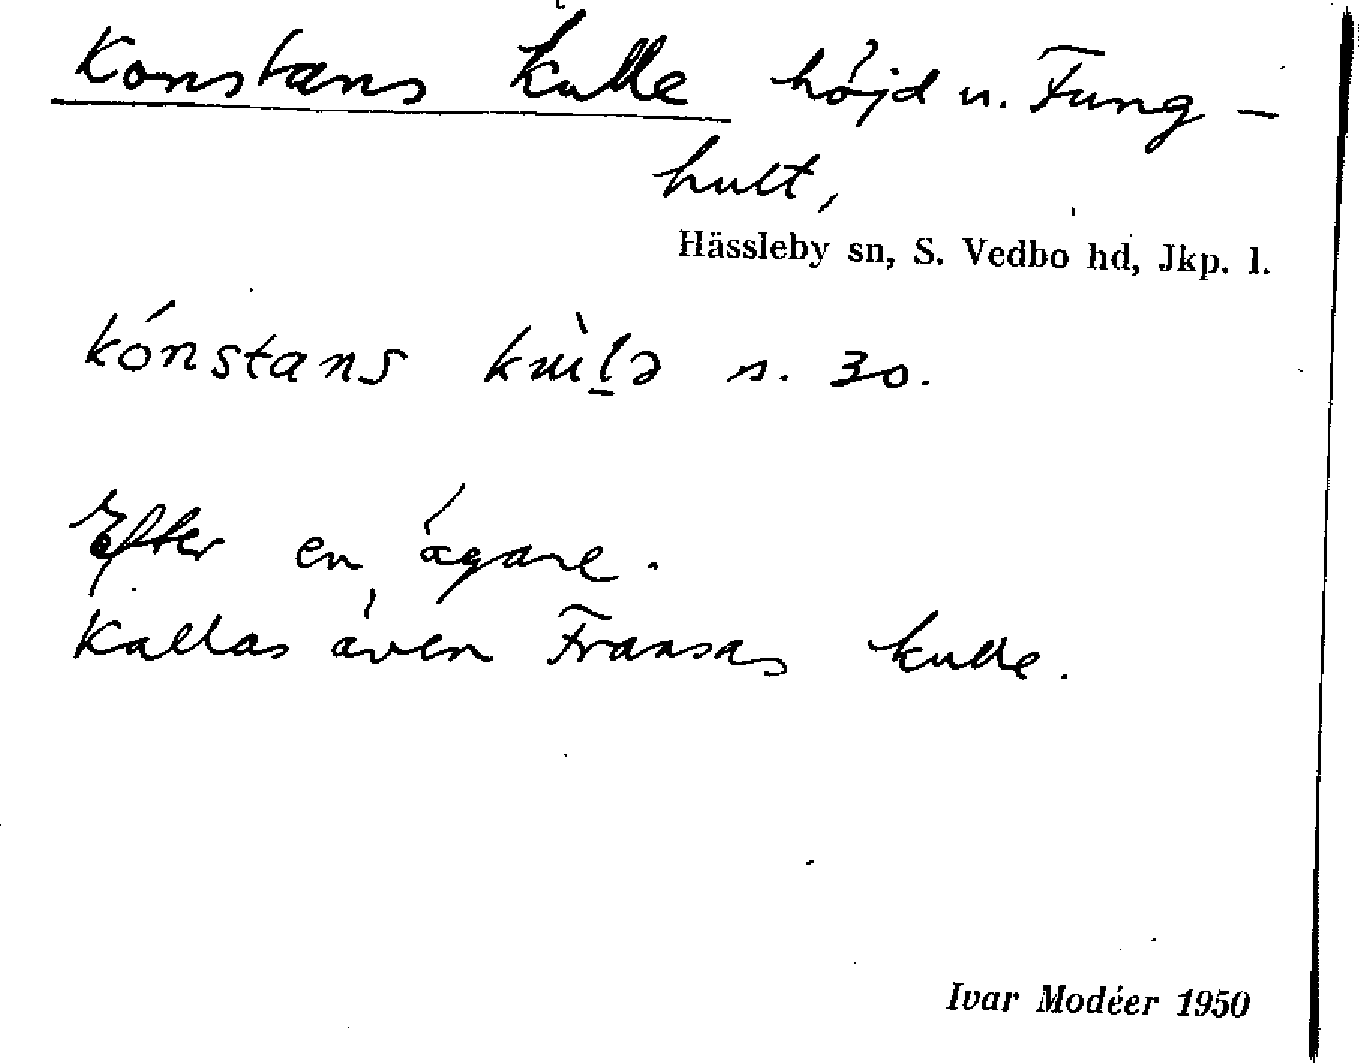 Konstans kulle höjd u. Fung-
hult,
Hässleby sn, S. Vedbo hd, Jkp. l.
kónstans kɯ̀l̲ə s. 30.
Efter en ägare.
Kallas även Fransas kulle.
Ivar Modéer 1950